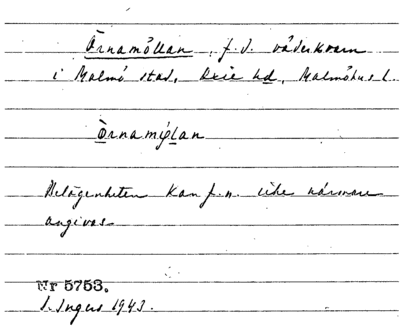 Örnamöllan, f.d. väderkvarn
i Malmö stad, Oxie hd, Malmöhus l.
Örnamÿlan
Belägenheten kan f.n. icke närmare
angivas
Nr 5753.
I. Ingers 1943.